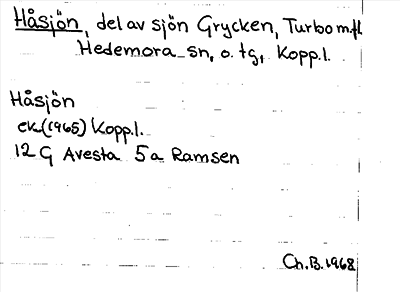 Håsjön, del av sjön Grycken, Turbo m.fl.
Hedemora sn, o. tg, Kopp.l.
Håsjön
ek.(1965) Kopp.l.
12 G Avesta 5a Ramsen
Ch.B. 1968